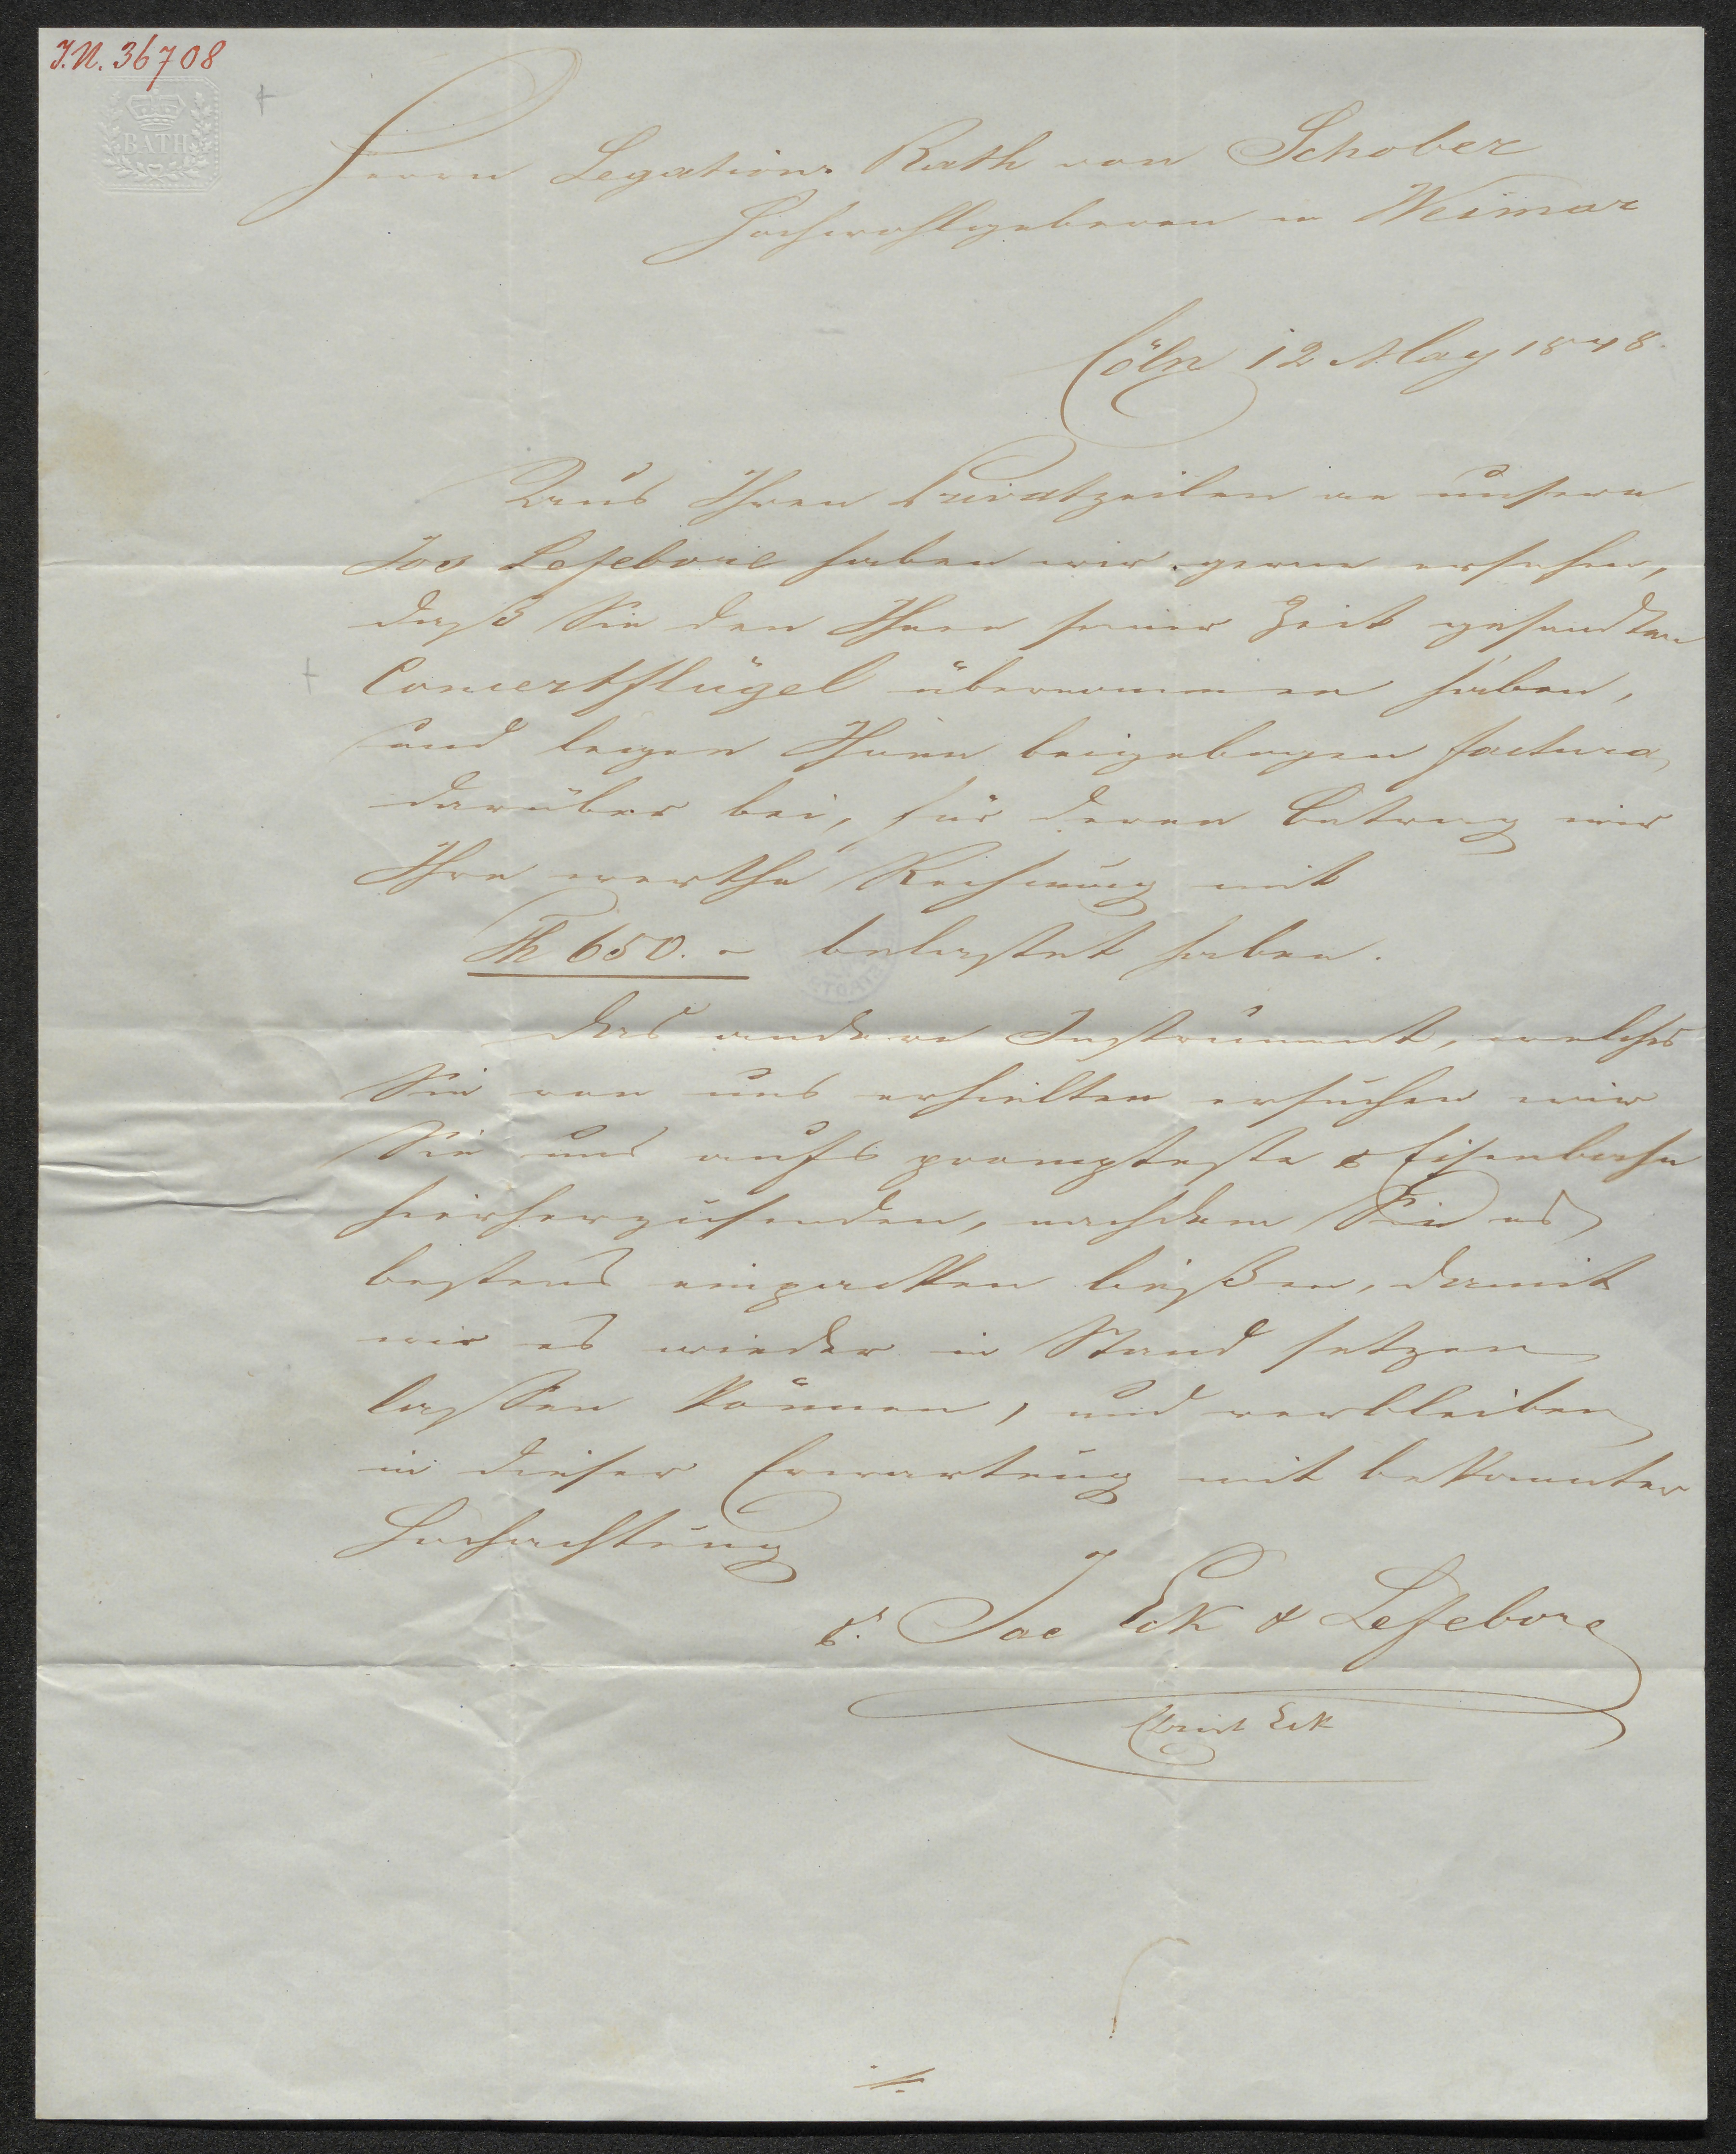 J.N. 36708
BATH
Herrn Legations Rath von Schober
Hochwohlgeboren in Weimar
Cöln 12 May 1848.
Aus Ihren Privatzeilen an unsern
Jos Lefebvre haben wir gerne ersehen,
daß Sie den Ihnen seiner Zeit gesandten
Concertflügel übernommen haben,
und legen Ihnen beigebogen factura
darüber bei, für deren Betrag wir
Ihre werthe Rechnung mit
Th 650.- belastet haben.
Das andere Instrument, welches
Sie von uns erhielten ersuchen wir
Sie uns aufs prompteste p Eisenbahn
hierherzusenden, nachdem Sie es
bestens einpacken ließen, damit
wir es wieder in Stand setzen
lassen können, und verbleiben
in dieser Erwartung mit bekannter
Hochachtung
p. Jac Eck & Lefebvre
Christ Eck